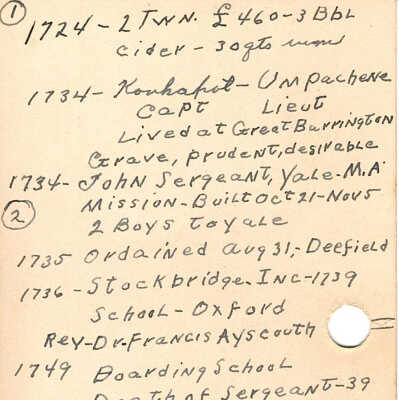 ① 1724 - 2 TWN. £ 460 - 3 Bbl
cider - 30 qts rum
1734 - Konkapot - Umpachene
Capt Lieut
Lived at Great Barrington
Grave, prudent, desirable
1734 - John Sergeant, Yale - M.A
② Mission - Built Oct 21 - Nov 5
2 Boys to Yale
1735 Ordained Aug 31, - Deefield
1736 - Stockbridge - Inc - 1739
School - Oxford
Rev - Dr. Francis Ayscouth
1749 Boarding School
Death of Sergeant - 39